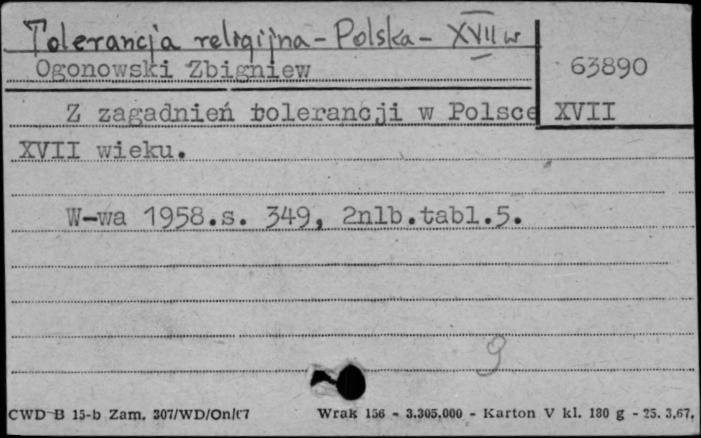 Tolerancja religijna - Polska - XVII w
Ogonowski Zbigniew
63890
Z zagadnień tolerancji w Polsce XVII
XVII wieku.
W-wa 1958.s. 349, 2nlb.tabl.5.
9
CWD B 15-b Zam. 307/WD/On/67 Wrak 156 - 3.305.000 - Karton V kl. 180 g - 25. 3.67.